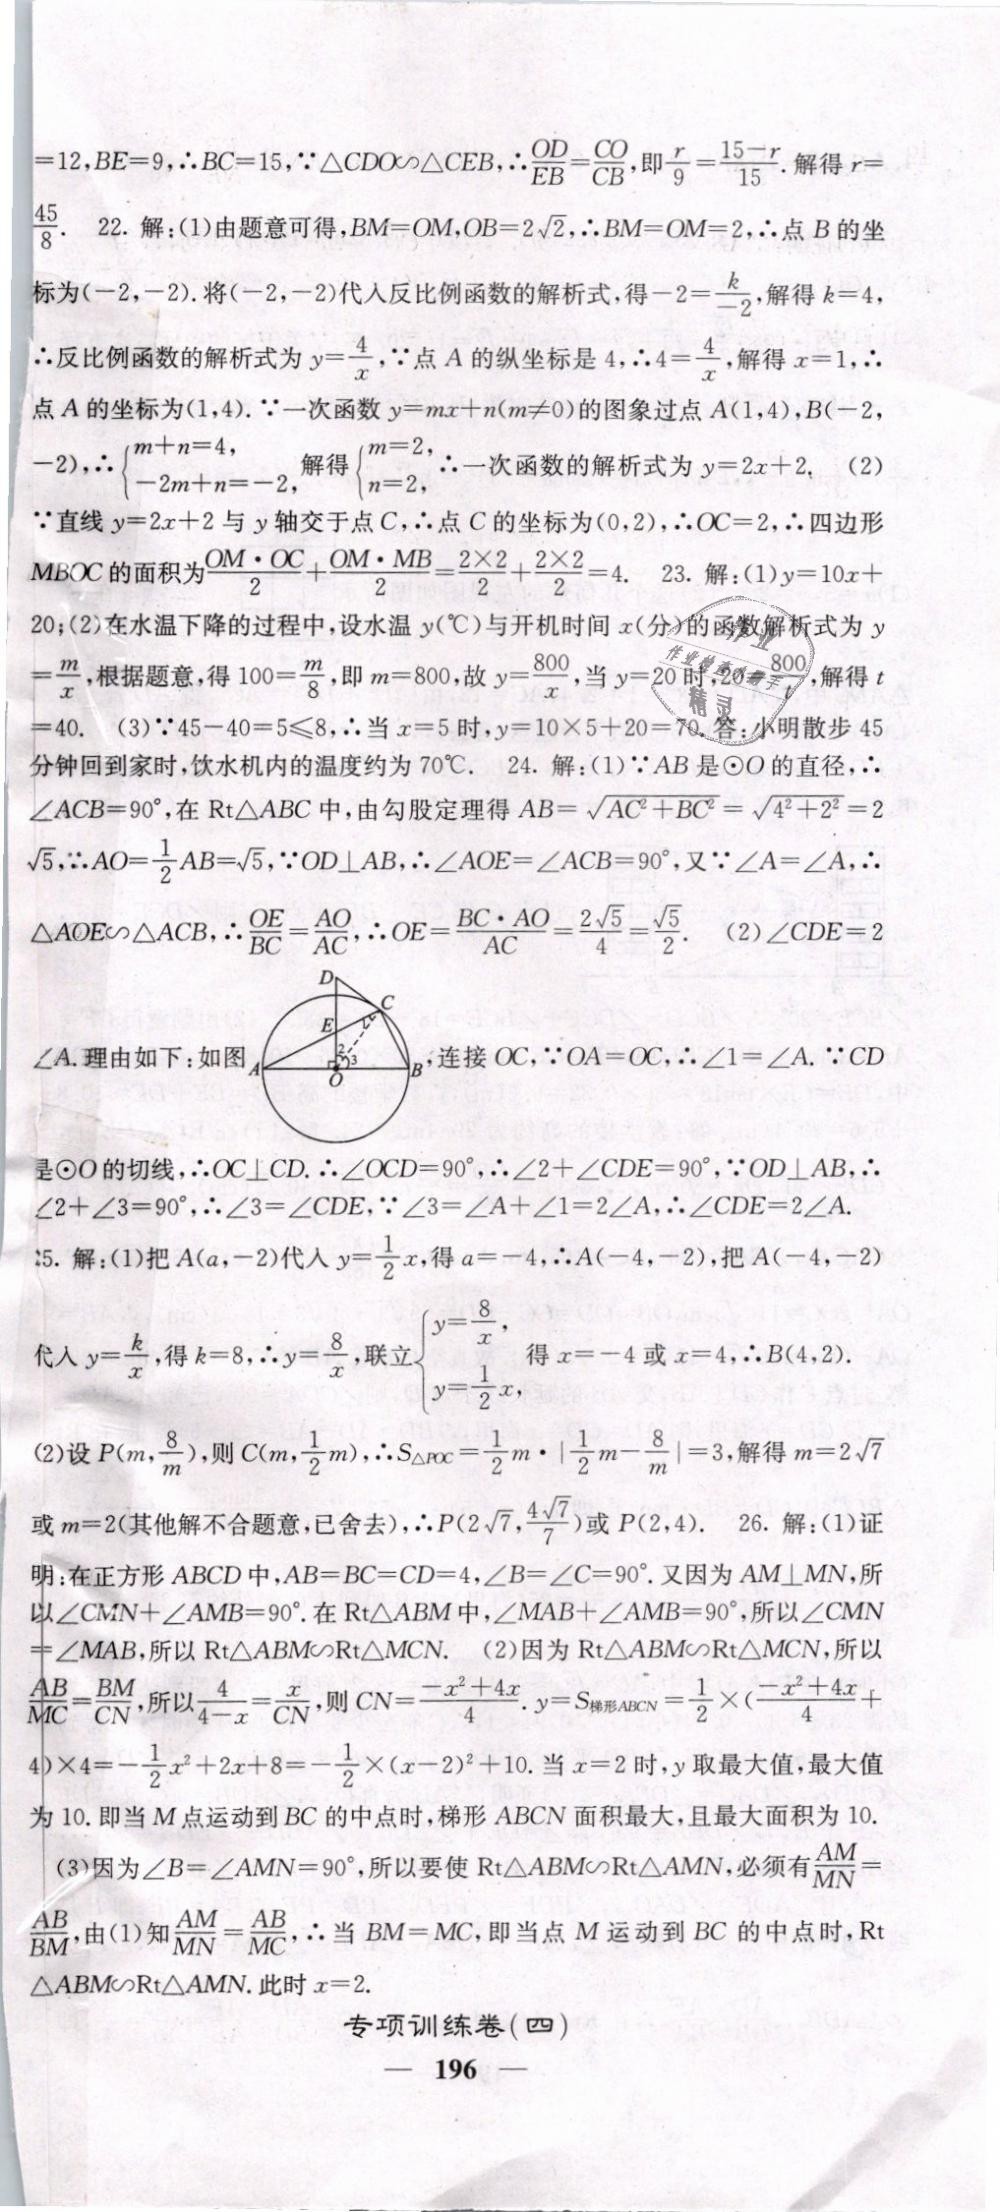 =12,BE=9,∴BC=15,∵△CDO∽△CEB,∴OD/EB=CO/CB,即r/9=(15-r)/15.解得r=
45/8. 22. 解:(1)由题意可得,BM=OM,OB=2√2,∴BM=OM=2,∴点B的坐
标为(-2,-2).将(-2,-2)代入反比例函数的解析式,得-2=k/-2,解得k=4,
∴反比例函数的解析式为y=4/x,∵点A的纵坐标是4,∴4=4/x,解得x=1,∴
点A的坐标为(1,4).∵一次函数y=mx+n(m≠0)的图象过点A(1,4),B(-2,
-2),∴{m+n=4, -2m+n=-2, 解得{m=2, n=2, ∴一次函数的解析式为y=2x+2. (2)
∵直线y=2x+2与y轴交于点C,∴点C的坐标为(0,2),∴OC=2,∴四边形
MBOC的面积为OM·OC/2+OM·MB/2=2×2/2+2×2/2=4. 23. 解:(1)y=10x+
20;(2)在水温下降的过程中,设水温y(℃)与开机时间x(分)的函数解析式为y
=m/x,根据题意,得100=m/8,即m=800,故y=800/x,当y=20时,20=800/t,解得t
=40. (3)∵45-40=5≤8,∴当x=5时,y=10×5+20=70.答:小明散步45
分钟回到家时,饮水机内的温度约为70℃. 24. 解:(1)∵AB是⊙O的直径,∴
∠ACB=90°,在Rt△ABC中,由勾股定理得AB=√(AC²+BC²)=√(4²+2²)=2
√5,∴AO=1/2AB=√5,∵OD⊥AB,∴∠AOE=∠ACB=90°,又∵∠A=∠A,∴
△AOE∽△ACB,∴OE/BC=AO/AC,∴OE=BC·AO/AC=2√5/4=√5/2. (2)∠CDE=2
D
C
E
1
2
3
A
O
B
∠A.理由如下:如图,连接OC,∵OA=OC,∴∠1=∠A.∵CD
是⊙O的切线,∴OC⊥CD.∴∠OCD=90°,∴∠2+∠CDE=90°,∵OD⊥AB,∴
∠2+∠3=90°,∴∠3=∠CDE,∵∠3=∠A+∠1=2∠A,∴∠CDE=2∠A.
5. 解:(1)把A(a,-2)代入y=1/2x,得a=-4,∴A(-4,-2),把A(-4,-2)
代入y=k/x,得k=8,∴y=8/x,联立{y=8/x, y=1/2x, 得x=-4或x=4,∴B(4,2).
(2)设P(m,8/m),则C(m,1/2m),∴S△POC=1/2m·|1/2m-8/m|=3,解得m=2√7
或m=2(其他解不合题意,已舍去),∴P(2√7,4√7/7)或P(2,4). 26. 解:(1)证
明:在正方形ABCD中,AB=BC=CD=4,∠B=∠C=90°.又因为AM⊥MN,所
以∠CMN+∠AMB=90°.在Rt△ABM中,∠MAB+∠AMB=90°,所以∠CMN
=∠MAB,所以Rt△ABM∽Rt△MCN. (2)因为Rt△ABM∽Rt△MCN,所以
AB/MC=BM/CN,所以4/(4-x)=x/CN,则CN=(-x²+4x)/4.y=S梯形ABCN=1/2×((-x²+4x)/4+
4)×4=-1/2x²+2x+8=-1/2×(x-2)²+10.当x=2时,y取最大值,最大值
为10.即当M点运动到BC的中点时,梯形ABCN面积最大,且最大面积为10.
(3)因为∠B=∠AMN=90°,所以要使Rt△ABM∽Rt△AMN,必须有AM/MN=
AB/BM,由(1)知AM/MN=AB/MC,∴当BM=MC,即当点M运动到BC的中点时,Rt
△ABM∽Rt△AMN.此时x=2.
专项训练卷(四)
— 196 —
作业
精灵